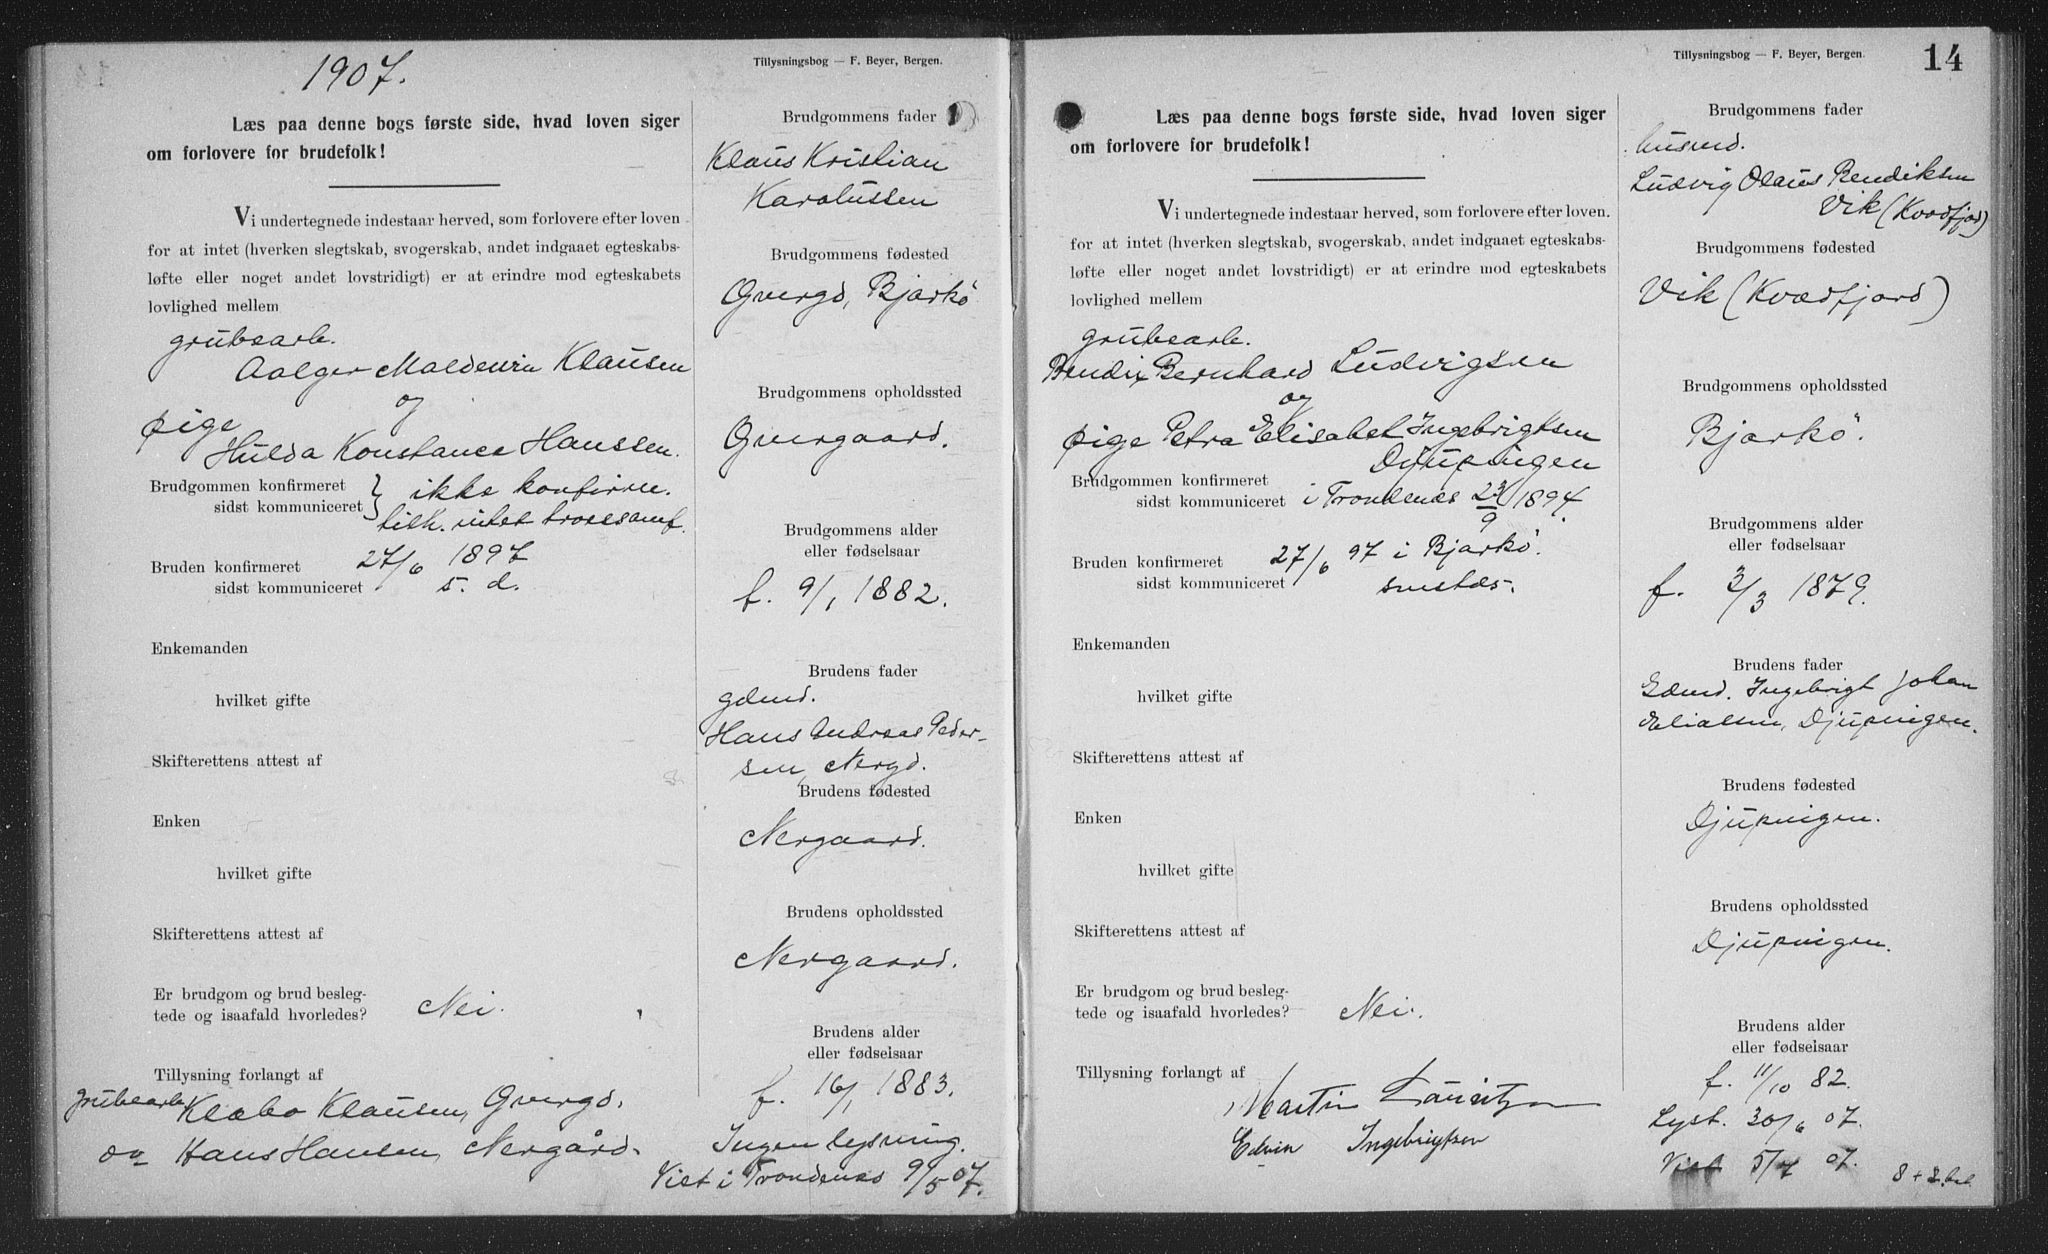 1907.
Tillysningsbog — F. Beyer, Bergen.
Læs paa denne bogs første side, hvad loven siger
om forlovere for brudefolk!
Vi undertegnede indestaar herved, som forlovere efter loven
for at intet (hverken slegtskab, svogerskab, andet indgaaet egteskabs-
løfte eller noget andet lovstridigt) er at erindre mod egteskabets
lovlighed mellem
grubearb.
Aalger Maldewin Klausen
og
pige
Hulda Konstance Hanssen.
Brudgommen konfirmeret
sidst kommuniceret
} ikke konfirm.
tilh. intet trossamf.
Bruden konfirmeret 27/6 1897
sidst kommuniceret s. d.
Enkemanden
hvilket gifte
Skifterettens attest af
Enken
hvilket gifte
Skifterettens attest af
Er brudgom og brud besleg-
tede og isaafald hvorledes? Nei.
Tillysning forlangt af
grubearb. Klæbo Klausen, Gvergd.
og Hans Hansen, Nergård.
Brudgommens fader
Klaus Kristian
Karolussen
Brudgommens fødested
Gvergd, Bjarkö
Brudgommens opholdssted
Gvergaard.
Brudgommens alder
eller fødselsaar
f. 9/1 1882.
Brudens fader
gdmd.
Hans Andreas Peder-
sen, Nergd.
Brudens fødested
Nergaard.
Brudens opholdssted
Nergaard.
Brudens alder
eller fødselsaar
f. 16/1 1883.
Ingen lysning.
Viet i Trondenes 9/5 07.
Tillysningsbog — F. Beyer, Bergen.
14
Læs paa denne bogs første side, hvad loven siger
om forlovere for brudefolk!
Vi undertegnede indestaar herved, som forlovere efter loven.
for at intet (hverken slegtskab, svogerskab, andet indgaaet egteskabs-
løfte eller noget andet lovstridigt) er at erindre mod egteskabets
lovlighed mellem
grubearb.
Bendix Bernhard Ludvigsen
og
pige Petra Elisabet Ingebrigtsen
Djupvigen
Brudgommen konfirmeret
sidst kommuniceret i Trondenes 23/9 1894.
Bruden konfirmeret 27/6 97 i Bjarkö.
sidst kommuniceret smstds.
Enkemanden
hvilket gifte
Skifterettens attest af
Enken
hvilket gifte
Skifterettens attest af
Er brudgom og brud besleg-
tede og isaafald hvorledes? Nei.
Tillysning forlangt af
Martin
Edvin Ingebrigtsen
Brudgommens fader
husmd.
Ludvig Olaus Bendiksen
Vik (Kvædfjord)
Brudgommens fødested
Vik (Kvædfjord)
Brudgommens opholdssted
Bjarkö.
Brudgommens alder
eller fødselsaar
f. 2/3 1879.
Brudens fader
Gdmd. Ingebrigt Johan
Eliassen, Djupvigen.
Brudens fødested
Djupvigen.
Brudens opholdssted
Djupvigen.
Brudens alder
eller fødselsaar
f. 11/10 82.
Lyst. 30/6 07.
Viet 5/7 07.